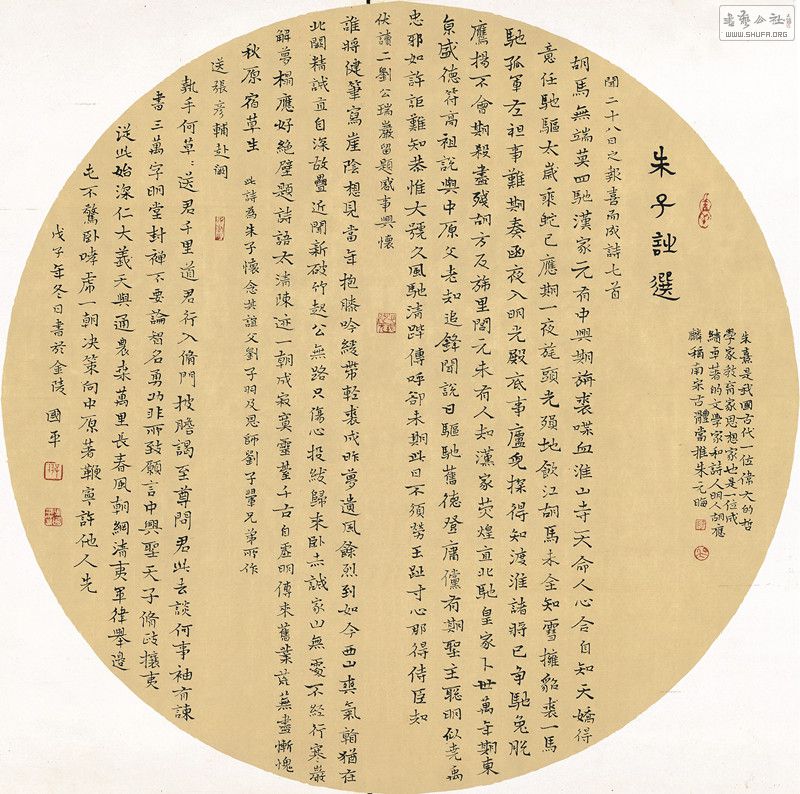 朱子詩選
朱熹是我國古代一位偉大的哲
學家教育家思想家也是一位成
績卓著的文學家和詩人明人胡應
麟稱南宋古體當推朱元晦
聞二十八日之報喜而成詩七首
胡馬無端莫四馳漢家元有中興期旃裘喋血淮山寺天命人心合自知天驕得
意任馳驅太歲乘蛇已應期一夜旄頭光殞地飲江胡馬未全知雪擁貂裘一馬
馳孤軍左袒事難期奏函夜入明光殿底事廬兒探得知渡淮諸將已争馳兔脫
鷹揚不會期殺盡殘胡方反旆里閭元未有人知漢家熒煌直北馳皇家卜世萬年期東
京盛德符高祖說與中原父老知追鋒聞說日驅馳舊德登庸儻有期聖主聰明似堯禹
忠邪如許詎難知恭惟大號久風馳清蹕傳呼卻未期此日不須勞玉趾寸心那得侍臣知
伏讀二劉公瑞巖留題感事興懷
誰將健筆寫崖陰想見當年抱膝吟緩帶輕裘成昨夢遺風餘烈到如今西山爽氣翰猶在
北闕精誠直自深故壘近聞新破竹起公無路只傷心投紱歸來卧赤誠家山無處不經行寒巖
解蕚榻應好絕壁題詩語太清陳迹一朝成寂寞靈臺千古自虛明傳來舊業荒蕪盡慚愧
秋原宿草生 此詩為朱子懷念其誼父劉子羽及恩師劉子翬兄弟所作
送張彥輔赴闕
執手何草草送君千里道君行入脩門披膽謁至尊問君此去談何事袖有諫
書三萬字明堂封禪不要論智名勇功非所致願言中興聖天子脩政攘夷
從此始深仁大義天與通農桑萬里長春風朝綱清夷軍律舉邊
屯不驚卧哮虎一朝決策向中原著鞭寧許他人先
戊子年冬日書於金陵 國平
書藝公社
WWW.SHUFA.ORG